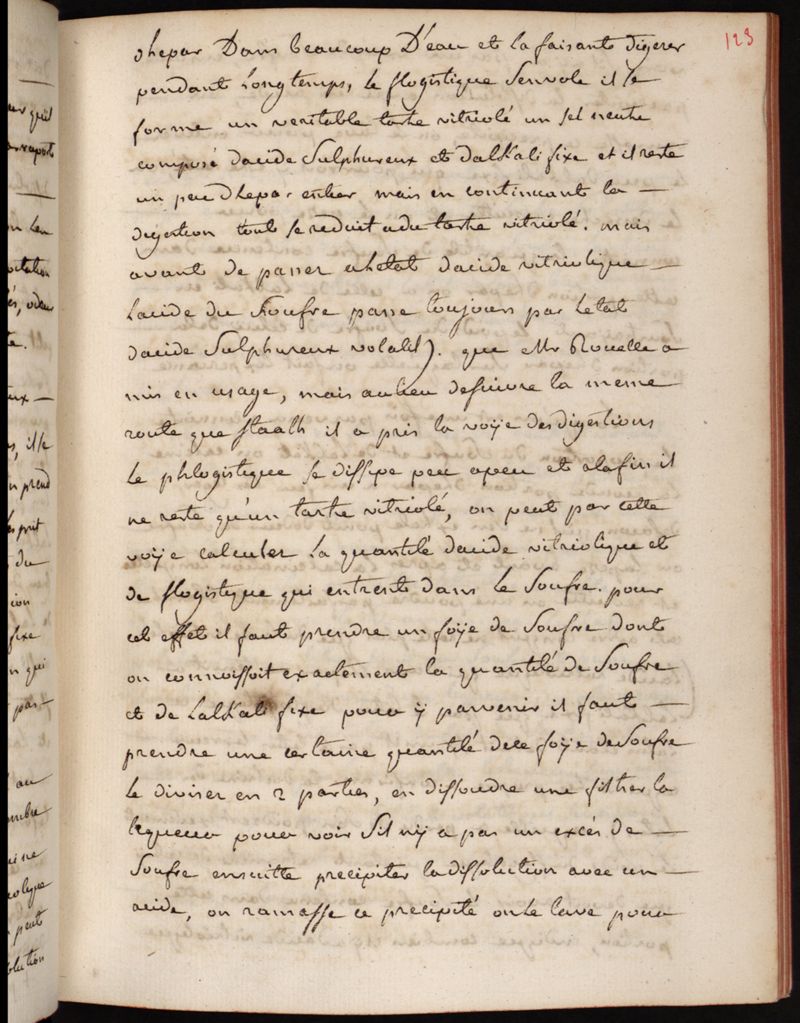 123
dhepar Dans beaucoup D'eau et la faisante digerer
pendant Longtemps, le flogistique Senvole il se
forme un veritable tartre vitriolé un sel neutre
composé dacide Sulphureux et dalKali fixe et il reste
un peu dhepar entier mais en continuant la —
digestion tout se reduit a du tartre vitriolé. mais
avant de passer a letat dacide vitriolique —
Lacide du Soufre passe toujours par letat
dacide Sulphureux volatil). que Mr Rouelle a
mis en usage, mais aulieu desuivre la meme
route que staalh il a pris la voÿe des digestions
le phlogistique se dissipe peu apeu et alafin il
ne reste qu'un tartre vitriolé, on peut par cette
voÿe calculer la quantité dacide vitriolique et
de flogistique qui entrent dans le Soufre. pour
cet effet il faut prendre un foÿe de Soufre dont
on connoissoit exactement la quantité de Soufre
et de LalKali fixe pour ÿ parvenir il faut —
prendre une certaine quantité de ce foÿe de Soufre
le diviser en 2 parties, en dissoudre une filtrer la
liqueur pour voir Sil nÿ a pas un excés de —
Soufre ensuitte precipiter la dissolution avec un —
acide, on ramasse ce precipité on le lave pour
qu'il
raport
ilse
prend
du
fixe
qui
par —
au
ne
peut